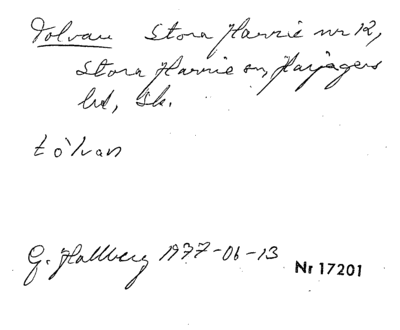 Tolvan Stora Harrie nr 12,
Stora Harrie sn, Harjagers
hd, Sk.
tòlvan
G. Hallberg 1977-06-13
Nr 17201